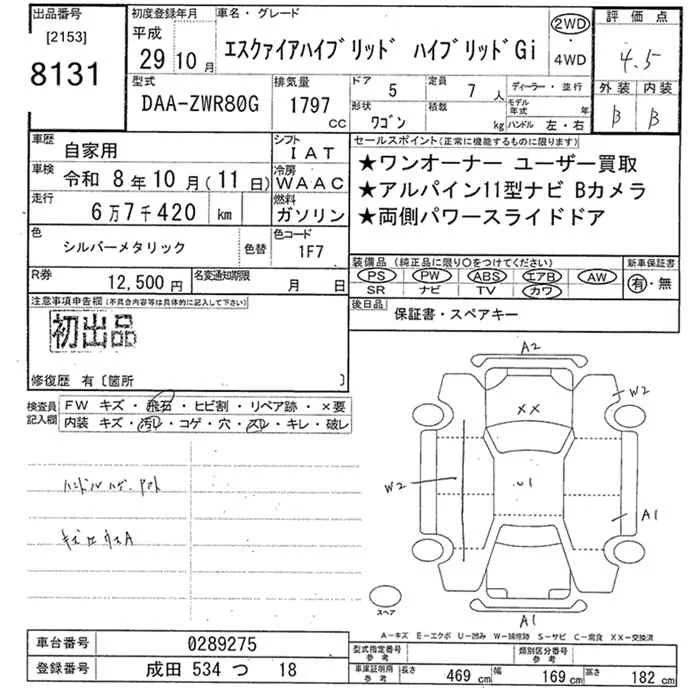 出品番号
[2153]
8131
初度登録年月
平成
29 10 月
車名・グレード
エスクァイアハイブリッド ハイブリッドGi
2WD
・
4WD
評価点
4.5
外装 内装
B B
型式
DAA-ZWR80G
排気量
1797
CC
ドア
5
定員
7 人
形状
ワゴン
積載
kg
ディーラー・並行
モデル年式 年
ハンドル 左・右
車歴
自家用
シフト
IAT
車検
令和 8年10月(11日)
冷房
WAAC
走行
6万7千420 km
燃料
ガソリン
色
シルバーメタリック
色替
色コード
1F7
R券
12,500円
名変通知期限
月 日
セールスポイント(正常に機能するものに限ります)
★ワンオーナー ユーザー買取
★アルパイン11型ナビ Bカメラ
★両側パワースライドドア
装備品(純正品に限り○をつけてください)
PS PW ABS エアB AW
SR ナビ TV カワ
新車保証書
有・無
後日品
保証書・スペアキー
注意事項申告欄(不具合内容等は具体的に記入して下さい)
初出品
修復歴 有〔箇所 〕
検査員記入欄
FW キズ・飛石・ヒビ割・リペア跡・×要
内装 キズ・汚レ・コゲ・穴・スレ・キレ・破レ
A2
W2
XX
W2
U1
A1
A1
スペア
A-キズ E-エクボ U-凹み W-補修跡 S-サビ C-腐食 XX-交換済
車台番号
0289275
登録番号
成田 534 つ 18
型式指定番号
参考
類別区分番号
参考
車庫証明用
参考
長さ
469 cm
幅
169 cm
高さ
182 cm